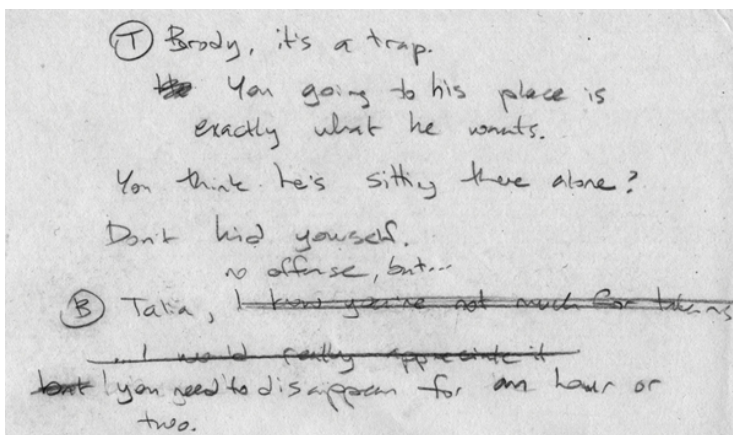 T Brody, it's a trap.
You going to his place is
exactly what he wants.
You think he's sitting there alone?
Don't kid yourself.
no offense, but...
B Talia, I know you're not much for taking
... I would really appreciate it
but you need to disappear for an hour or
two.